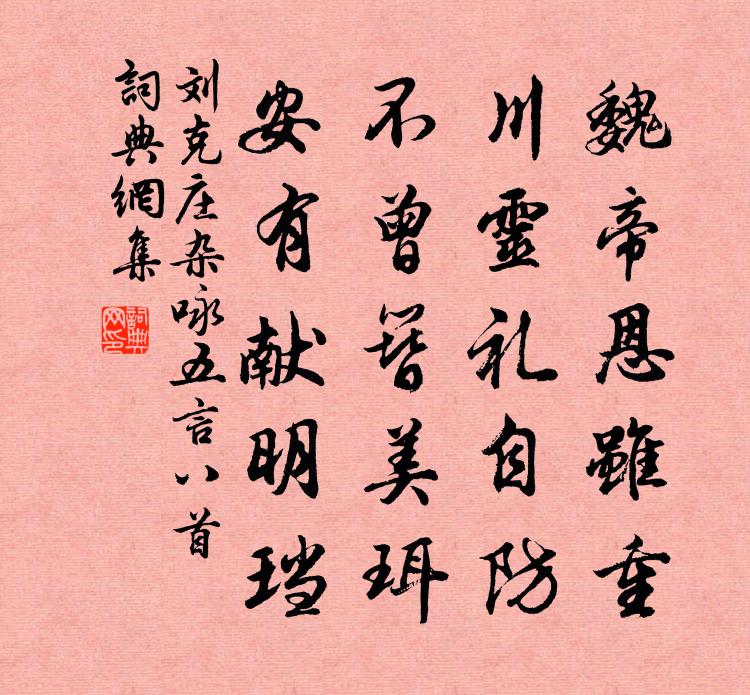 魏帝恩雖重
川靈礼自防
不曾簪美珥
安有献明珰
刘克庄杂咏五言八首
詞典網集
詞典网印